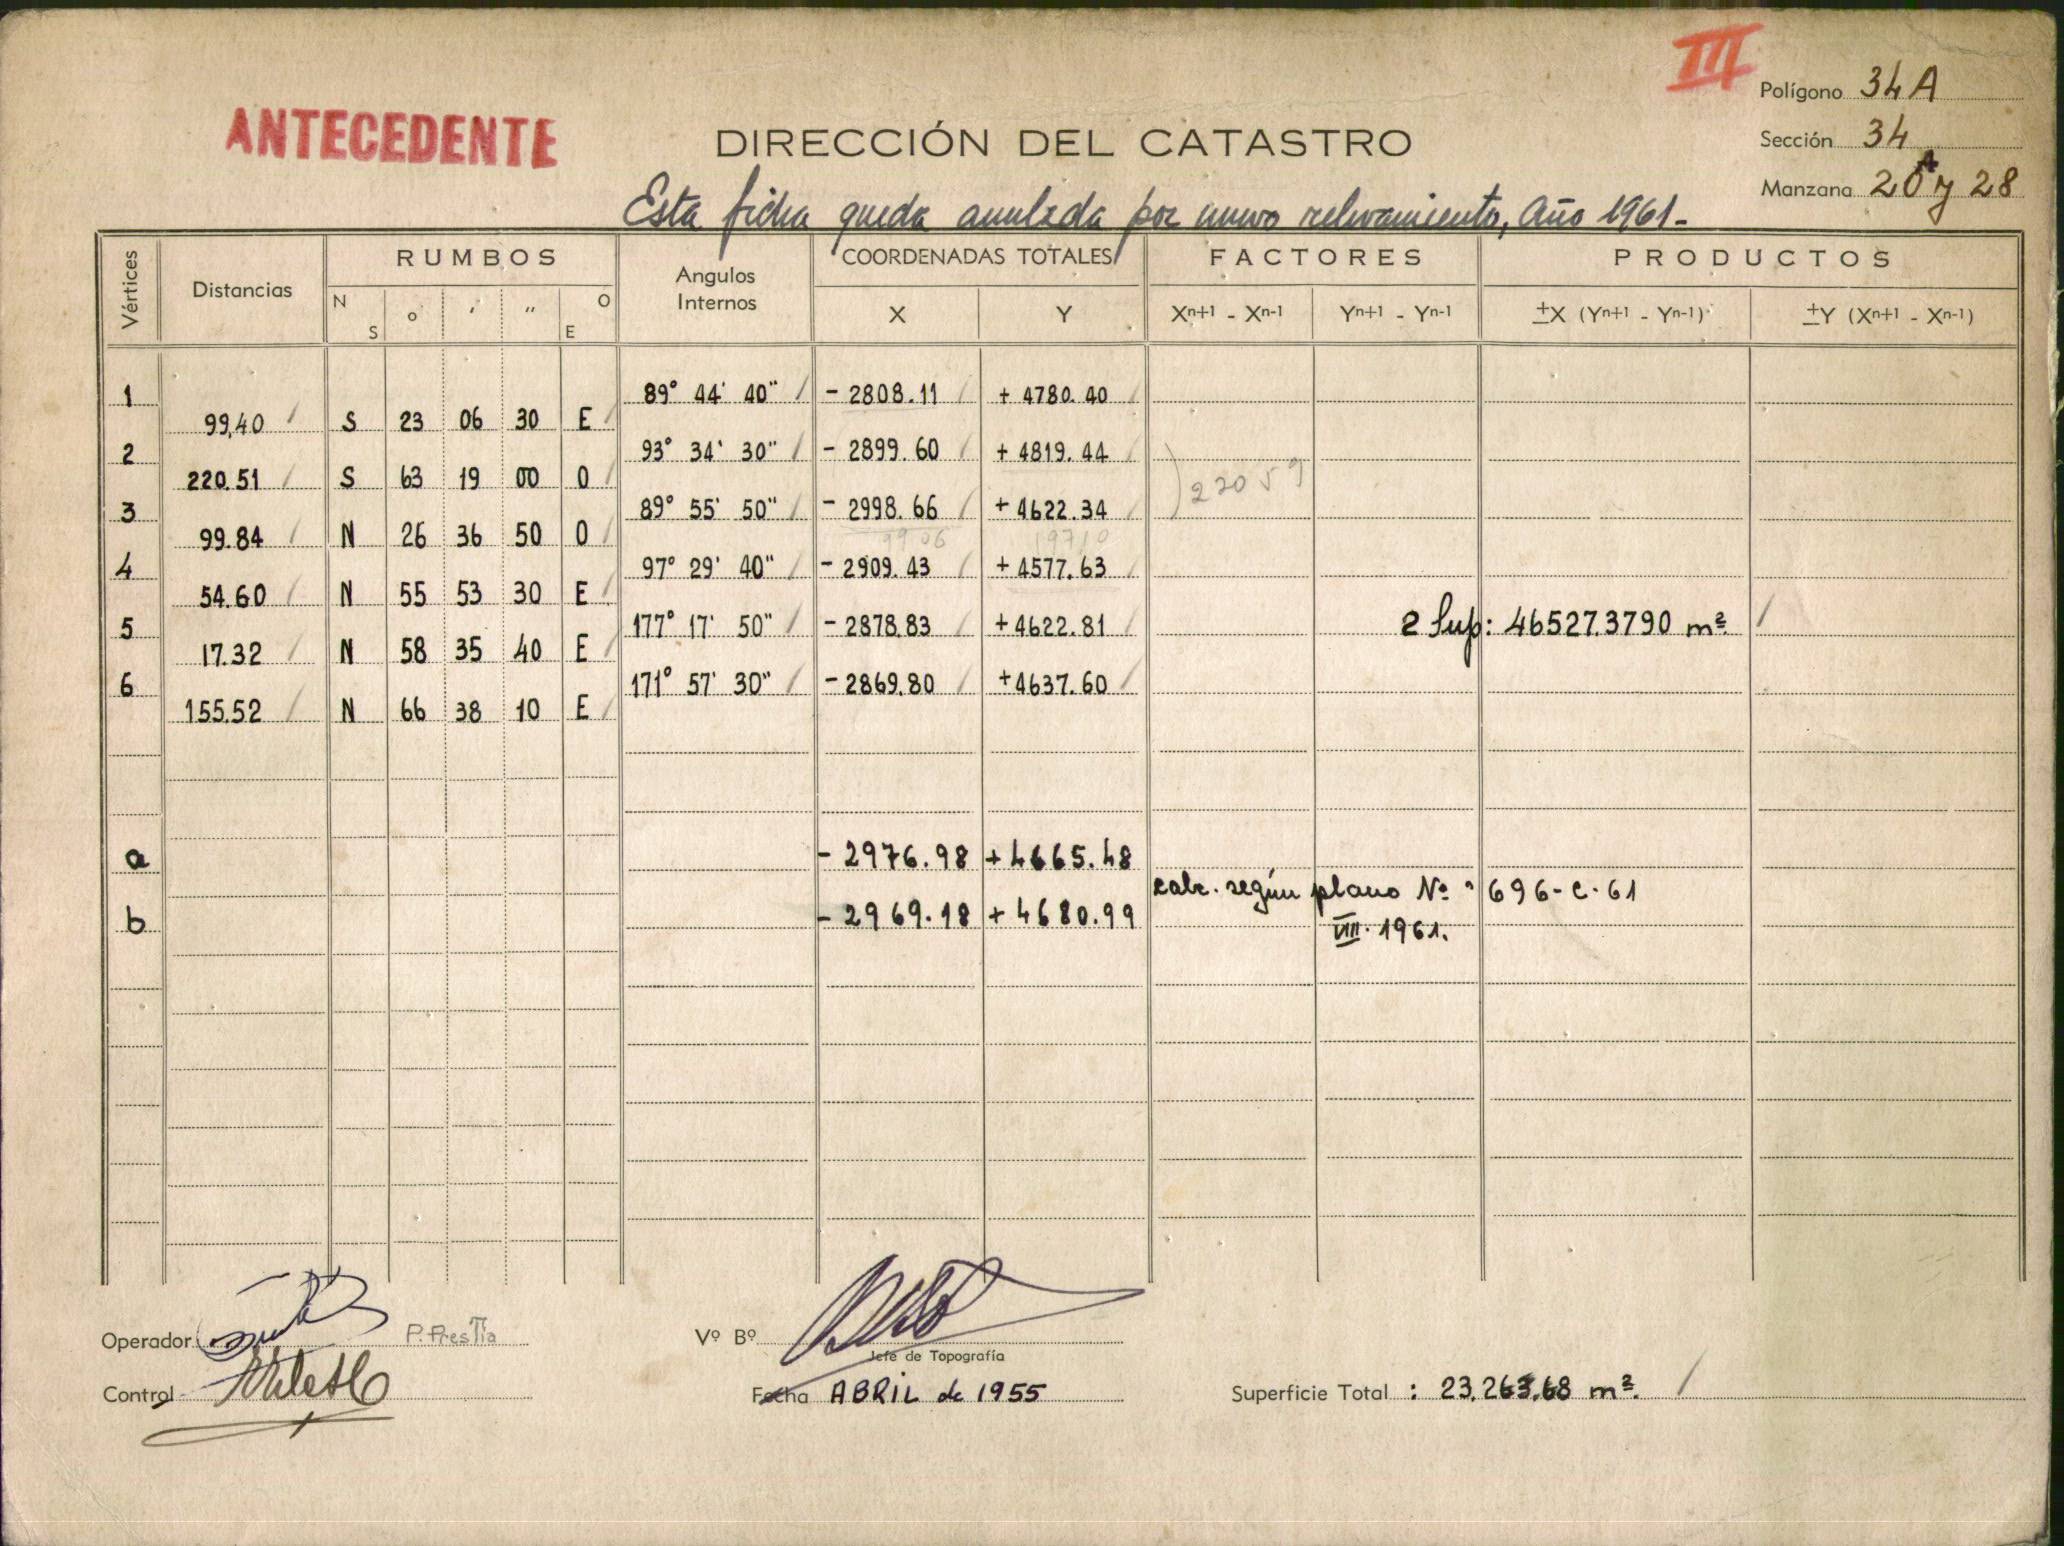 III
Polígono 34 A
ANTECEDENTE
DIRECCIÓN DEL CATASTRO
Sección 34
Manzana 20A y 28
Esta ficha queda anulada por nuevo relevamiento, Año 1961-
Vértices Distancias RUMBOS Angulos Internos COORDENADAS TOTALES FACTORES PRODUCTOS
N S ° ' " O E X Y Xn+1 - Xn-1 Yn+1 - Yn-1 ±X (Yn+1 - Yn-1) ±Y (Xn+1 - Xn-1)
1 89° 44' 40" - 2808.11 + 4780.40
99,40 S 23 06 30 E
2 93° 34' 30" - 2899.60 + 4819.44
220.51 S 63 19 00 O
22059
3 89° 55' 50" - 2998.66 + 4622.34
99.84 N 26 36 50 O
9906 19710
4 97° 29' 40" - 2909.43 + 4577.63
54.60 N 55 53 30 E
5 177° 17' 50" - 2878.83 + 4622.81
2 Sup: 46527.3790 m²
17.32 N 58 35 40 E
6 171° 57' 30" - 2869.80 + 4637.60
155.52 N 66 38 10 E
a - 2976.98 + 4665.48
calc. según plano Nº 696-C-61
b - 2969.18 + 4680.99
VIII. 1961.
Operador P. Prestía
Vº Bº
Jefe de Topografía
Control
Fecha ABRIL de 1955
Superficie Total : 23.263,68 m².